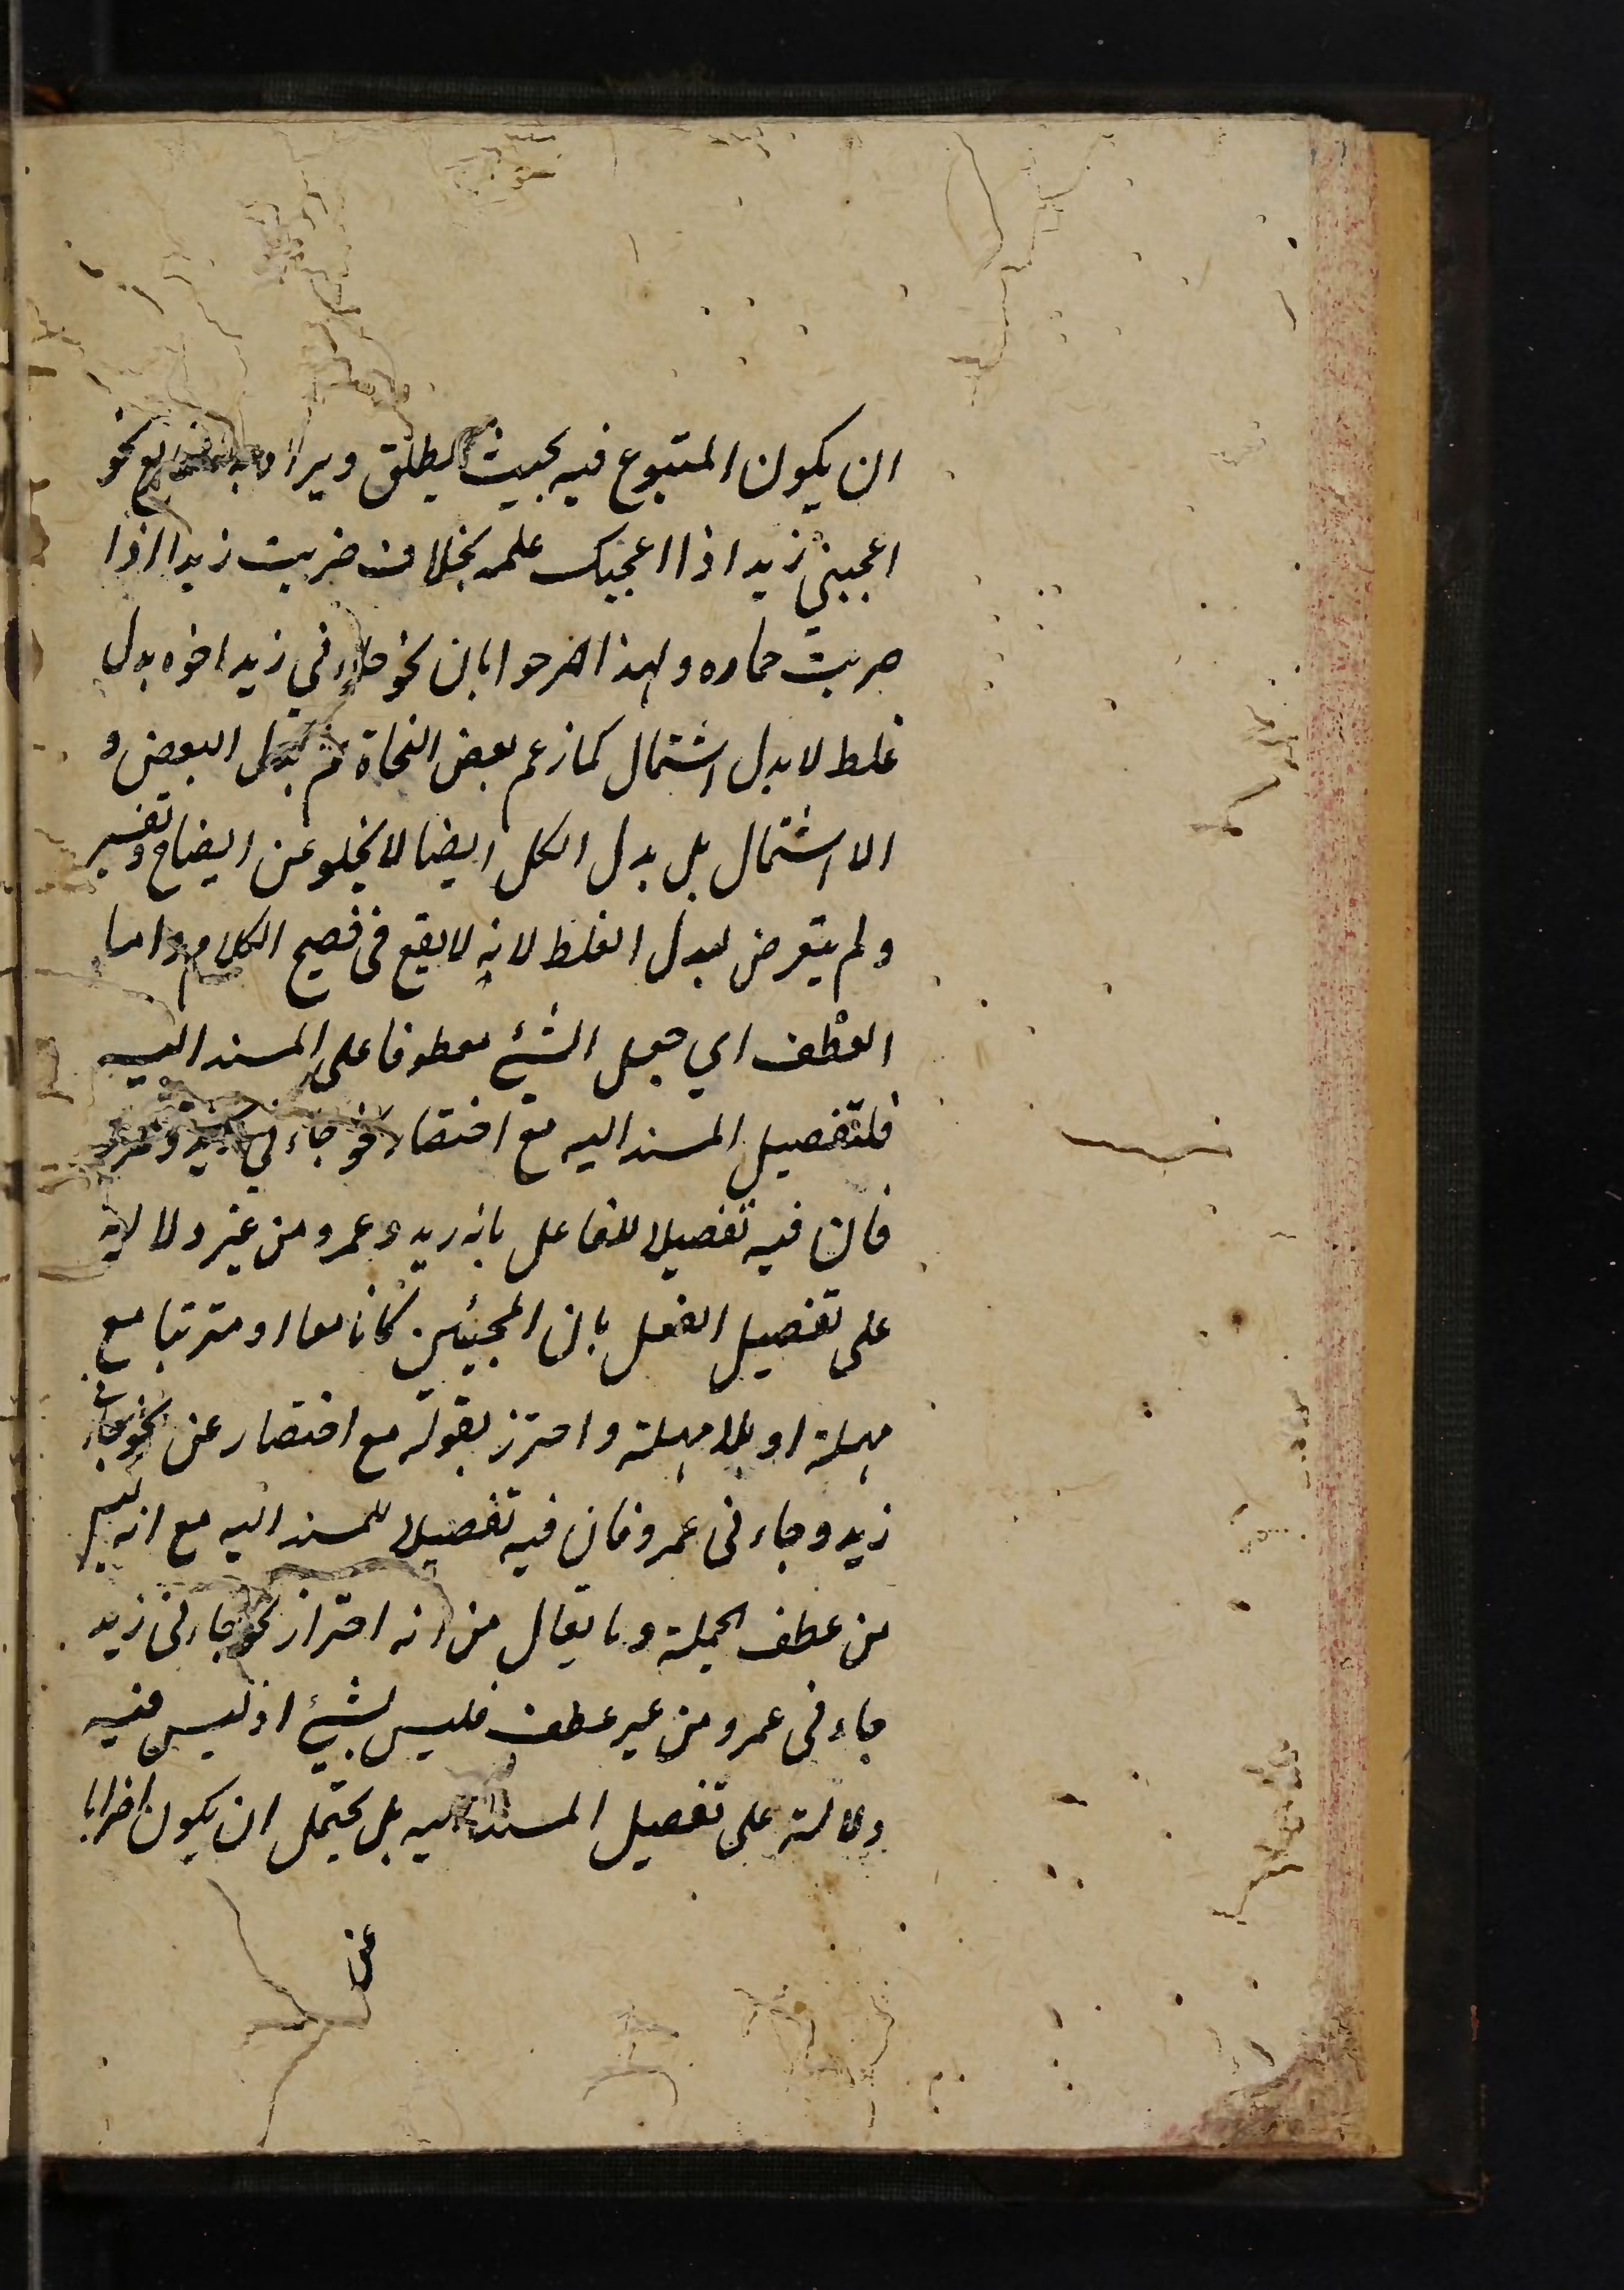 ان يكون المتبوع فيه بحيث يطلق ويراد به التابع نحو
اعجبني زيد اذا اعجبك علمه بخلاف ضربت زيدا اذا
ضربت حماره ولهذا صرحوا بان نحو جاءني زيد اخوه بدل
غلط لا بدل اشتمال كما زعم بعض النحاة ثم بدل البعض و
الاشتمال بل بدل الكل ايضا لا يخلو عن ايضاح وتفسير
ولم يتعرض لبدل الغلط لانه لا يقع فى فصيح الكلام واما
العطف اي جعل الشئ معطوفا على المسند اليه
فلتفصيل المسند اليه مع اختصار نحو جاءني زيد وعمرو
فان فيه تفصيلا للفاعل بانه زيد وعمرو من غير دلالة
على تفصيل الفعل بان المجيئين كانا معا او مترتبا مع
مهلة او بلا مهلة واحترز بقوله مع اختصار عن نحو جاءنى
زيد وجاءنى عمرو فان فيه تفصيلا للمسند اليه مع انه ليس
من عطف الجملة وما يقال من انه احتراز نحو جاءنى زيد
جاءنى عمرو من غير عطف فليس بشئ اذ ليس فيه
دلالة على تفصيل المسند اليه بل يحتمل ان يكون اضرابا
عن